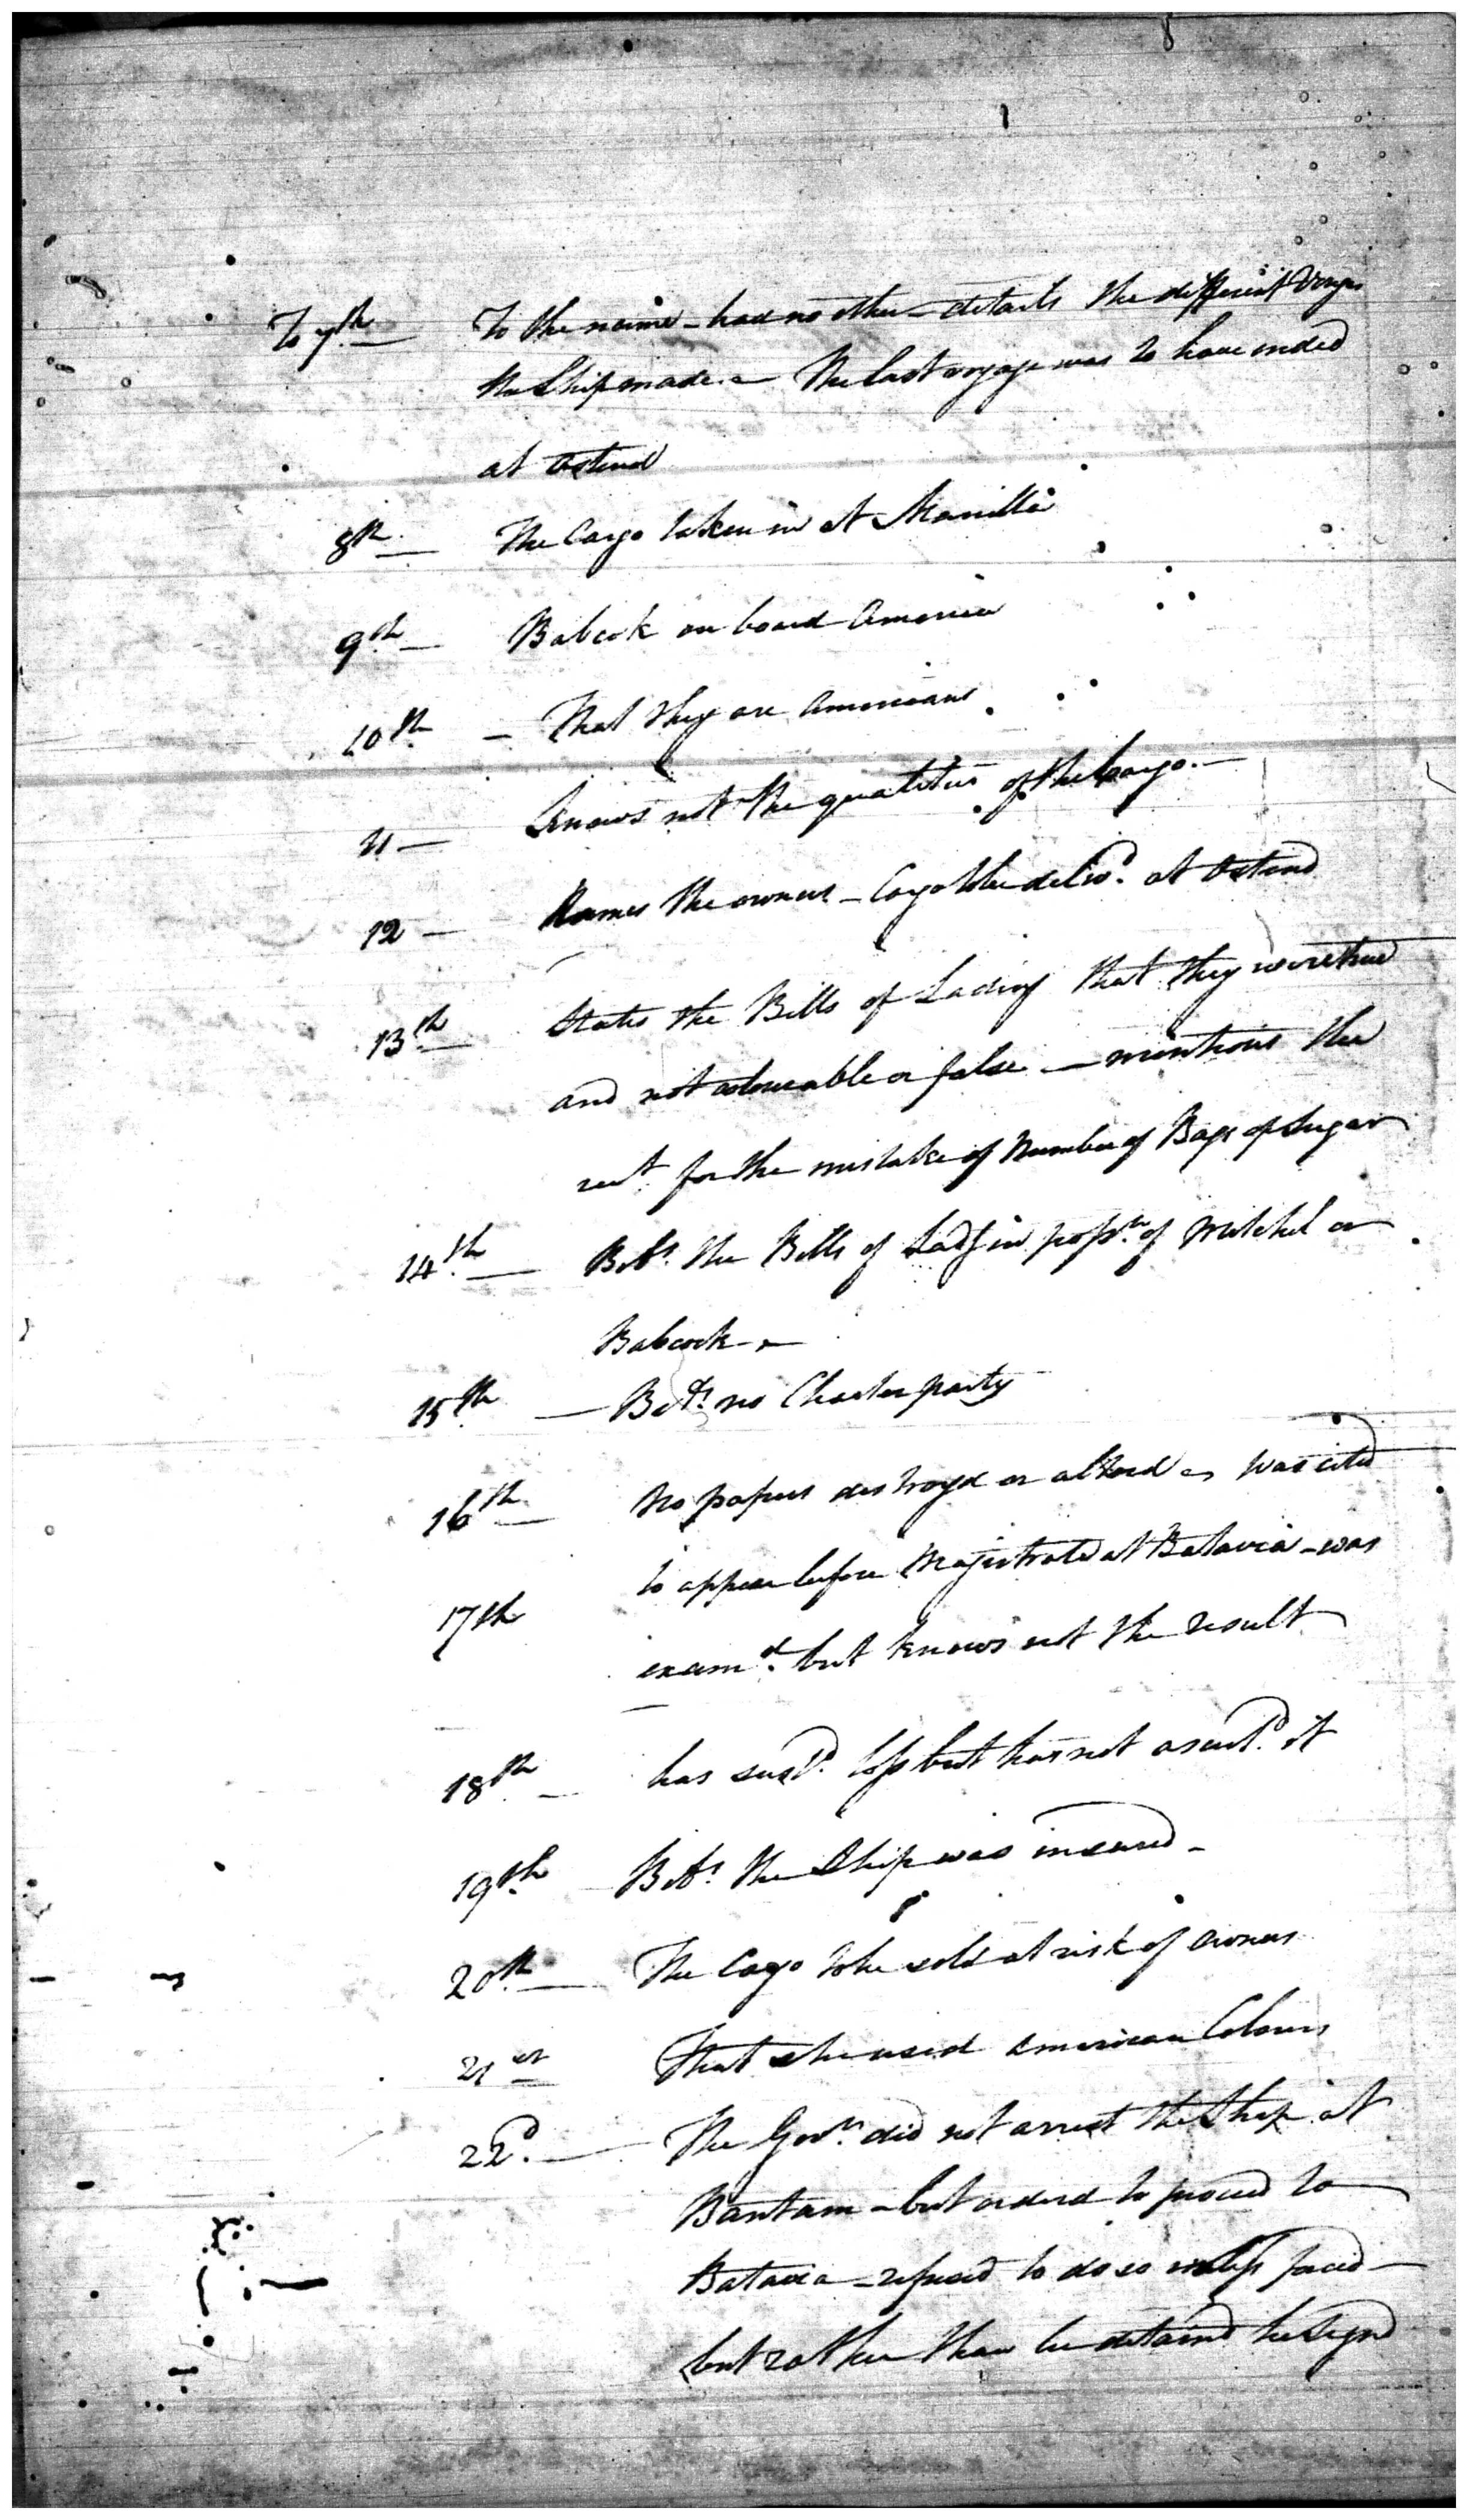 To 7th — To the name - had no other - details the different Voyages
the Ship made. - The last voyage was to have ended
at Ostend
8th — The Cargo taken in at Manilla
9th — Babcok on board America
10th — That they are Americans.
11 — Knows not the quatitus of the Cargo. —
12 — Names the owners - Cargo to be delivd. at Ostend
13th — States the Bills of Lading that they were true
and not colourable or false — mentions the
rect. for the mistake of Number of Bags of Sugar
14th — Bets. the Bills of Ladg in possn. of Mitchel or
Babcock - -
15th — Bets. no Charter party
16th — No papers destroyd or altered - was cited
to appear before Magistrate at Batavia - was
17th examd. but knows not the result
18th — has susd. loss but has not ascertd. it
19th — Bets. the Ship was insured -
20th — The Cargo to be sold at risk of owners
21st That she used American Colours
22d. — The Govr. did not arrest the Ship at
Bantam - but ordered to proceed to
Batavia - refused to do so unless forced -
but rather than be detained he signd